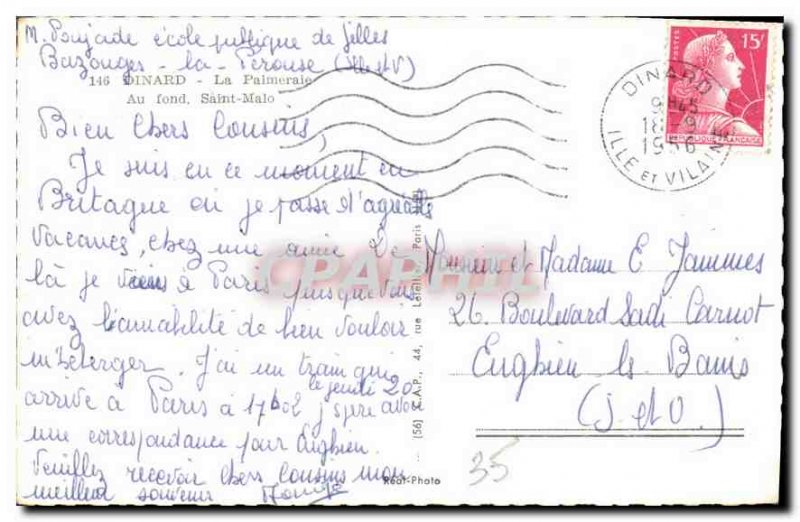 M. Poujade école publique de filles
Bazouges - la - Pérouse (Ille et V)
146 DINARD - La Palmeraie
Au fond, Saint-Malo
Bien Chers Cousins,
Je suis en ce moment en
Bretagne où je passe d'agréables
vacances, chez une amie De
là je viens à Paris puisque vous
avez l'amabilité de bien vouloir
m'héberger. J'ai un train qui
le jeudi 20
arrive à Paris à 17h02 j'espère avoir
une correspondance pour Enghien.
Veuillez recevoir chers cousins mon
meilleur souvenir
Monsieur et Madame E Jammes
26. Boulevard Sadi Carnot
Enghien les Bains
(S. et O.)
POSTES
15F
RÉPUBLIQUE FRANÇAISE
DINARD
9H45
18-9
1956
ILLE ET VILAINE
CPAPHIL
(56) C.A.P., 44, rue Letellier, Paris
Réal-Photo
35